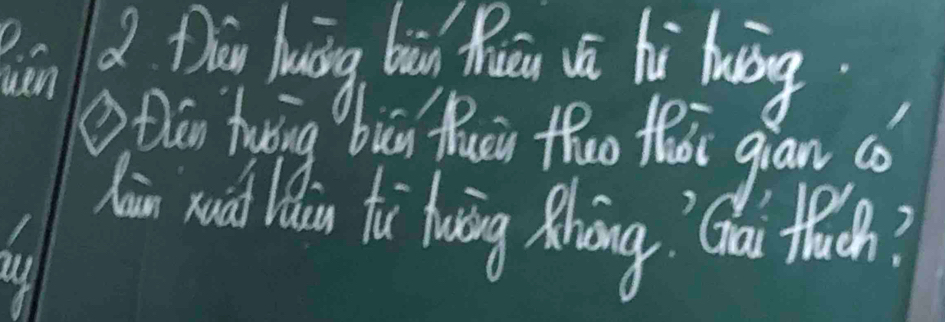 2. Điện trường biến thiên và từ trường.
(?) Điện trường biến thiên theo thời gian có
làm xuất hiện từ trường không? Giải thích?